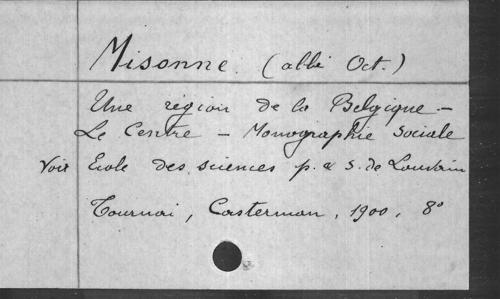 Misonne. (abbé Oct.)
Une région de la Belgique –
Le Centre – Monographie sociale
Voir Ecole des sciences p. & s. de Louvain
Tournai, Casterman, 1900, 8°